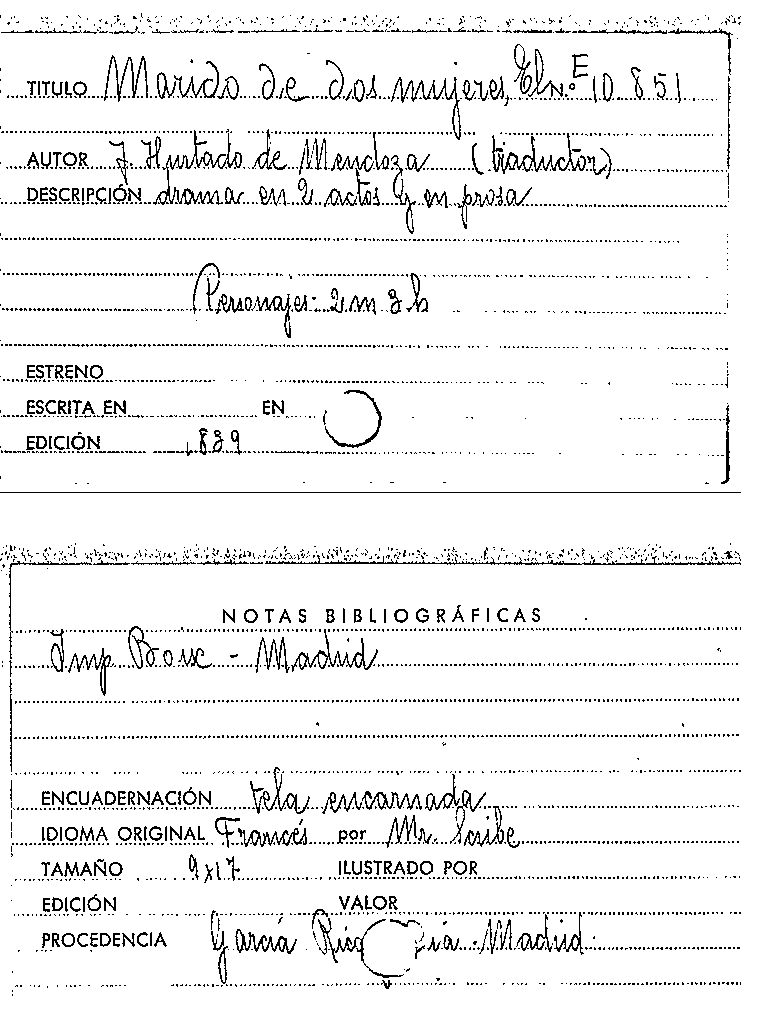 TITULO Marido de dos mujeres, El N.º E 10 851
AUTOR J. Hurtado de Mendoza (traductor)
DESCRIPCIÓN drama en 2 actos y en prosa
Personajes- 2 m 3 h
ESTRENO
ESCRITA EN EN
EDICIÓN 1.839
NOTAS BIBLIOGRÁFICAS
Imp Boix - Madrid
ENCUADERNACIÓN tela encarnada
IDIOMA ORIGINAL Francés por Mr. Scribe
TAMAÑO 9x17 ILUSTRADO POR
EDICIÓN VALOR
PROCEDENCIA García Rico Madrid.